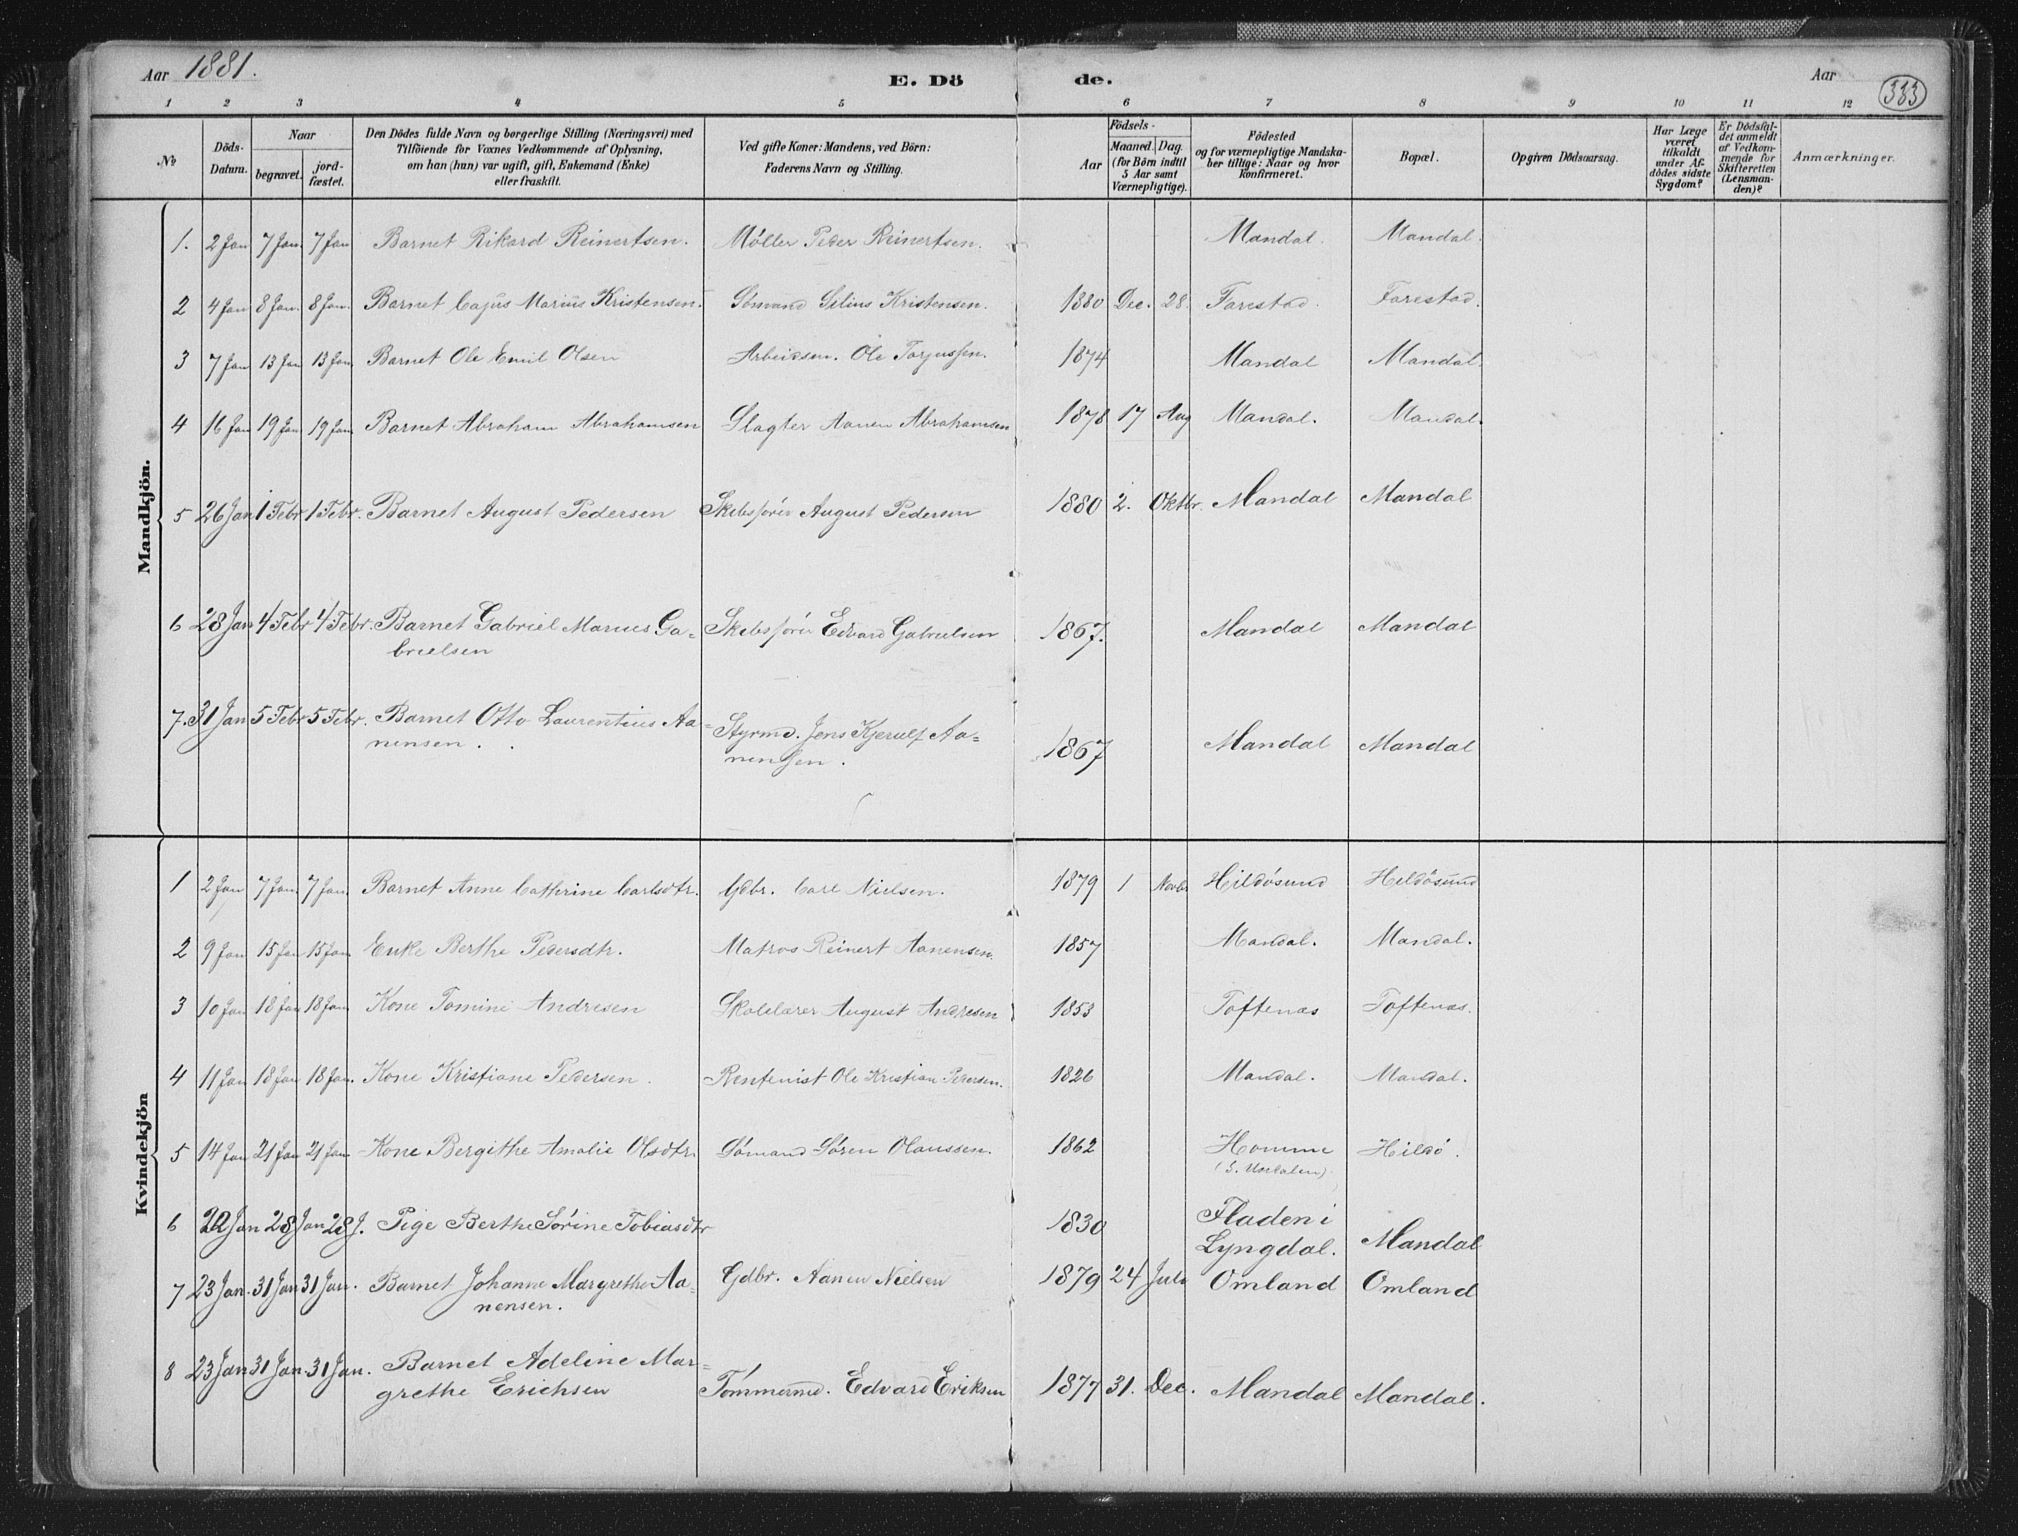 Aar 1881. E. Dö de. Aar 333
1 2 3 4 5 6 7 8 9 10 11 12
No
Döds-Datum.
Naar
begravet.
jord-fæstet.
Den Dödes fulde Navn og borgerlige Stilling (Næringsvei) med
Tilföiende for Voxnes Vedkommende af Oplysning,
om han (hun) var ugift, gift, Enkemand (Enke)
eller fraskilt.
Ved gifte Koner: Mandens, ved Börn:
Faderens Navn og Stilling.
Födsels-
Aar
Maaned. Dag.
(for Börn indtil
5 Aar samt
Værnepligtige).
Födested
og for værnepligtige Mandska-
ber tillige: Naar og hvor
konfirmeret.
Bopæl.
Opgiven Dödsaarsag.
Har Læge
været
tilkaldt
under Af-
dödes sidste
Sygdom?
Er Dödsfal-
det anmeldt
af Vedkom-
mende for
Skifteretten
(Lensman-
den)?
Anmærkninger.
Mandkjön.
1. 2 Jan 7 Jan. 7 Jan Barnet Rikard Reinertsen. Møller Peder Reinertsen. Mandal. Mandal.
2 4 Jan 8 Jan. 8 Jan. Barnet Cajus Marius Kristensen. Sømand Selius Kristensen. 1880 Dec. 28. Farestad. Farestad.
3 7 Jan 13 Jan 13 Jan Barnet Ole Emil Olsen Arbeidsm. Ole Torjussen. 1874 Mandal Mandal.
4 16 Jan 19 Jan 19 Jan Barnet Abraham Abrahamsen Slagter Aanen Abrahamsen 1878 17 Aug Mandal. Mandal.
5 26 Jan 1 Febr 1 Febr. Barnet August Pedersen Skibsfører August Pedersen 1880 2. Oktbr. Mandal Mandal
6 28 Jan 4 Febr 4 Febr. Barnet Gabriel Marius Ga-
brielsen Skibsfører Edvard Gabrielsen 1867. Mandal Mandal
7. 31 Jan 5 Febr 5 Febr. Barnet Otto Laurentius Aa-
nensen. Styrmd. Jens Kjerulf Aa-
nensen. 1867 Mandal Mandal
Kvindekjön
1 2 Jan 7 Jan. 7 Jan. Barnet Anne Cathrine Carlsdtr. Gdbr. Carl Nielsen. 1879 1 Novbr Hildøsund Hildøsund
2 9 Jan 15 Jan 15 Jan Enke Berthe Pedersdtr. Matros Reinert Aanensen. 1857 Mandal. Mandal.
3 10 Jan 18 Jan 18 Jan Kone Tomine Andresen Skolelærer August Andresen 1853 Toftenæs Toftenæs.
4 11 Jan 18 Jan 18 Jan. Kone Kristiane Pedersen. Rentenist Ole Kristian Pedersen. 1826 Mandal. Mandal.
5 14 Jan 21 Jan 21 Jan Kone Bergithe Amalie Olsdtr. Sømand Søren Olaussen. 1862 Homme
(S. Undalen). Hildø.
6 22 Jan 28 Jan 28 J. Pige Berthe Sørine Tobiasdtr 1830 Fladen i
Lyngdal. Mandal
7 23 Jan. 31 Jan 31 Jan. Barnet Johanne Margrethe Aa-
nensen. Gdbr. Aanen Nielsen 1879 24 Juli Omland Omland
8 23 Jan 31 Jan. 31 Jan. Barnet Adeline Mar-
grethe Erichsen Tømmermd. Edvard Eriksen 1877 31. Dec. Mandal Mandal.